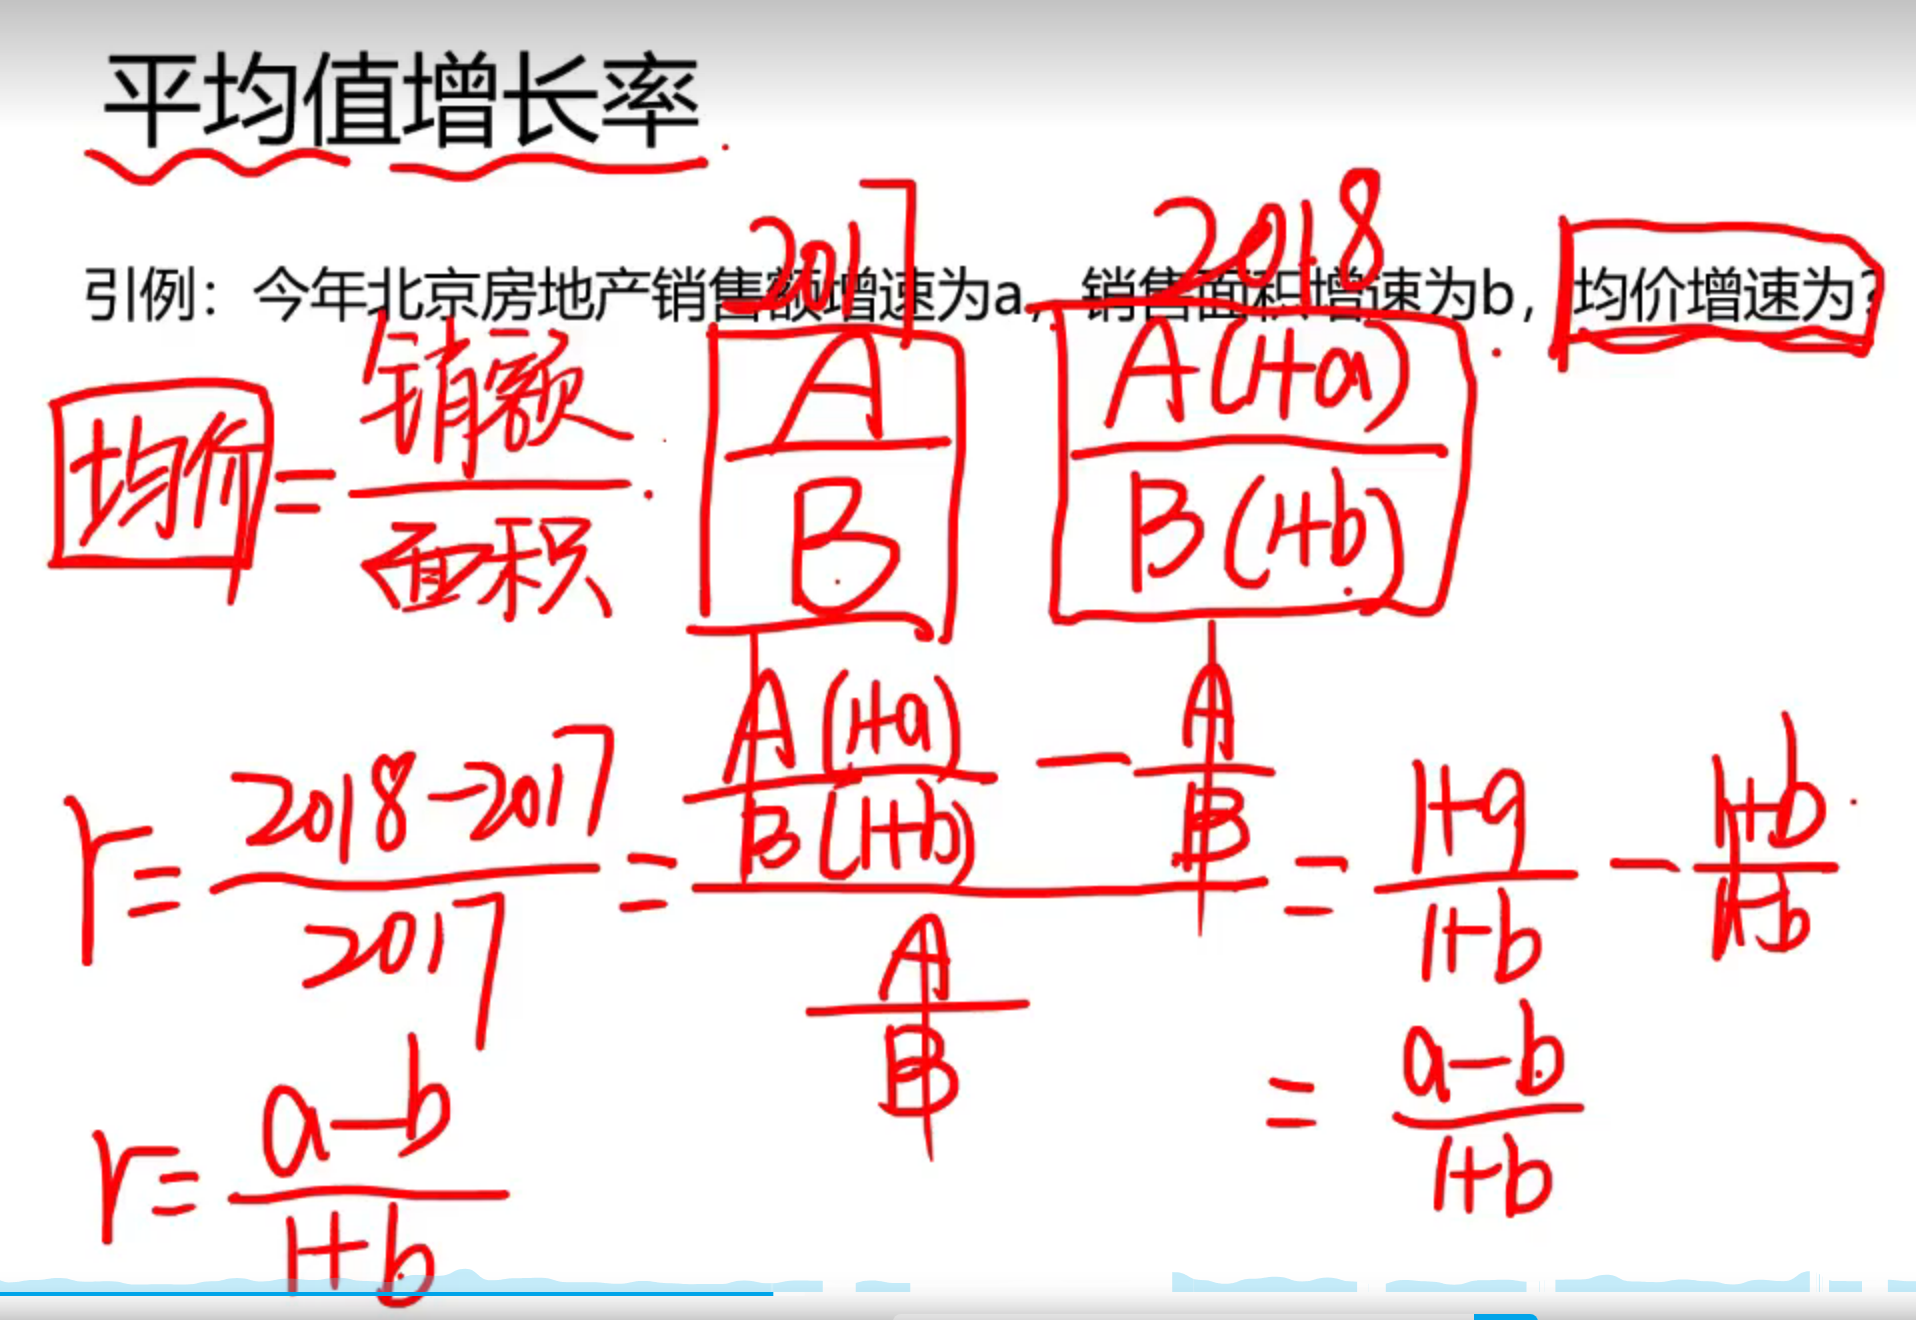 平均值增长率
引例：今年北京房地产销售额增速为a，销售面积增速为b，均价增速为?
2017 2018
均价 = 销额 / 面积 A / B A(1+a) / B(1+b)
r = 2018-2017 / 2017 = A(1+a) / B(1+b) - A / B / A / B = 1+a / 1+b - 1+b / 1+b
= a-b / 1+b
r = a-b / 1+b